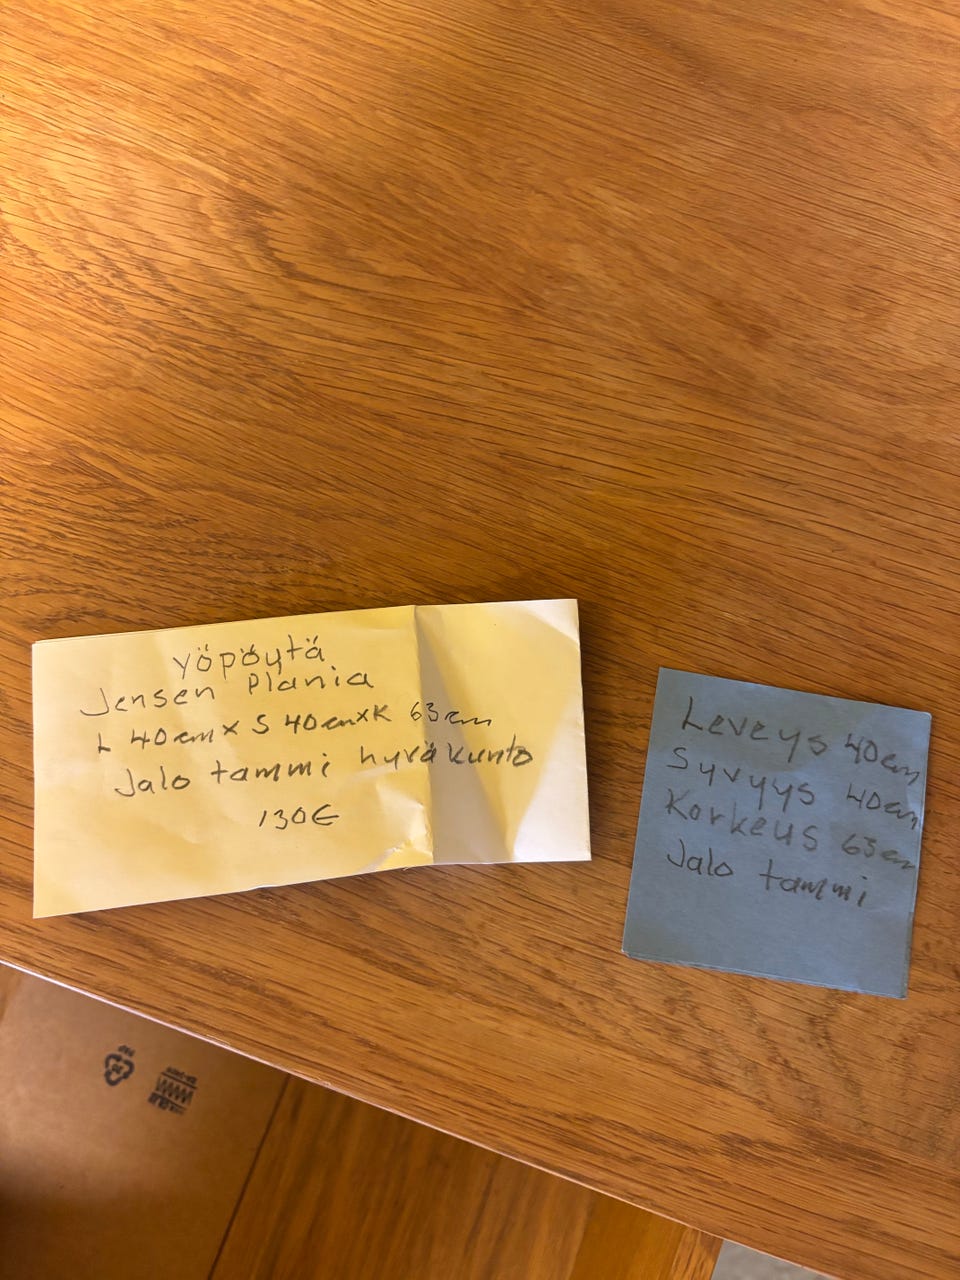 Yöpöytä
Jensen Plania
L 40cm x S 40cm x K 63cm
Jalo tammi hyvä kunto
130€
Leveys 40cm
Syvyys 40cm
Korkeus 63cm
Jalo tammi